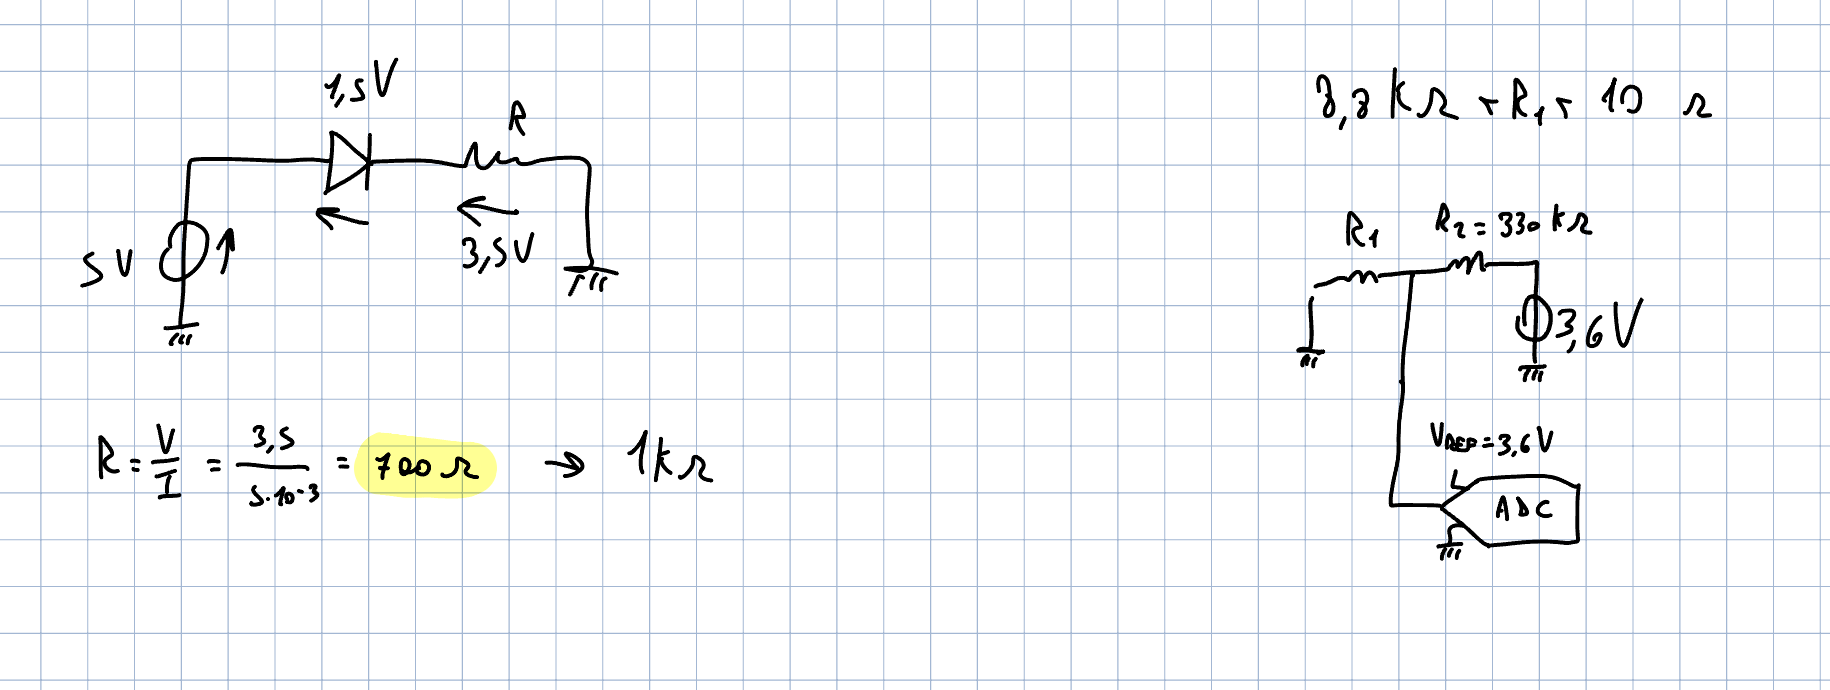 1,5 V
R
5 V
3,5 V
R = V/I = 3,5/5·10-3 = 700 Ω → 1 k Ω
10 Ω
R1
R2 = 330 k Ω
3,6 V
VREF = 3,6 V
ADC